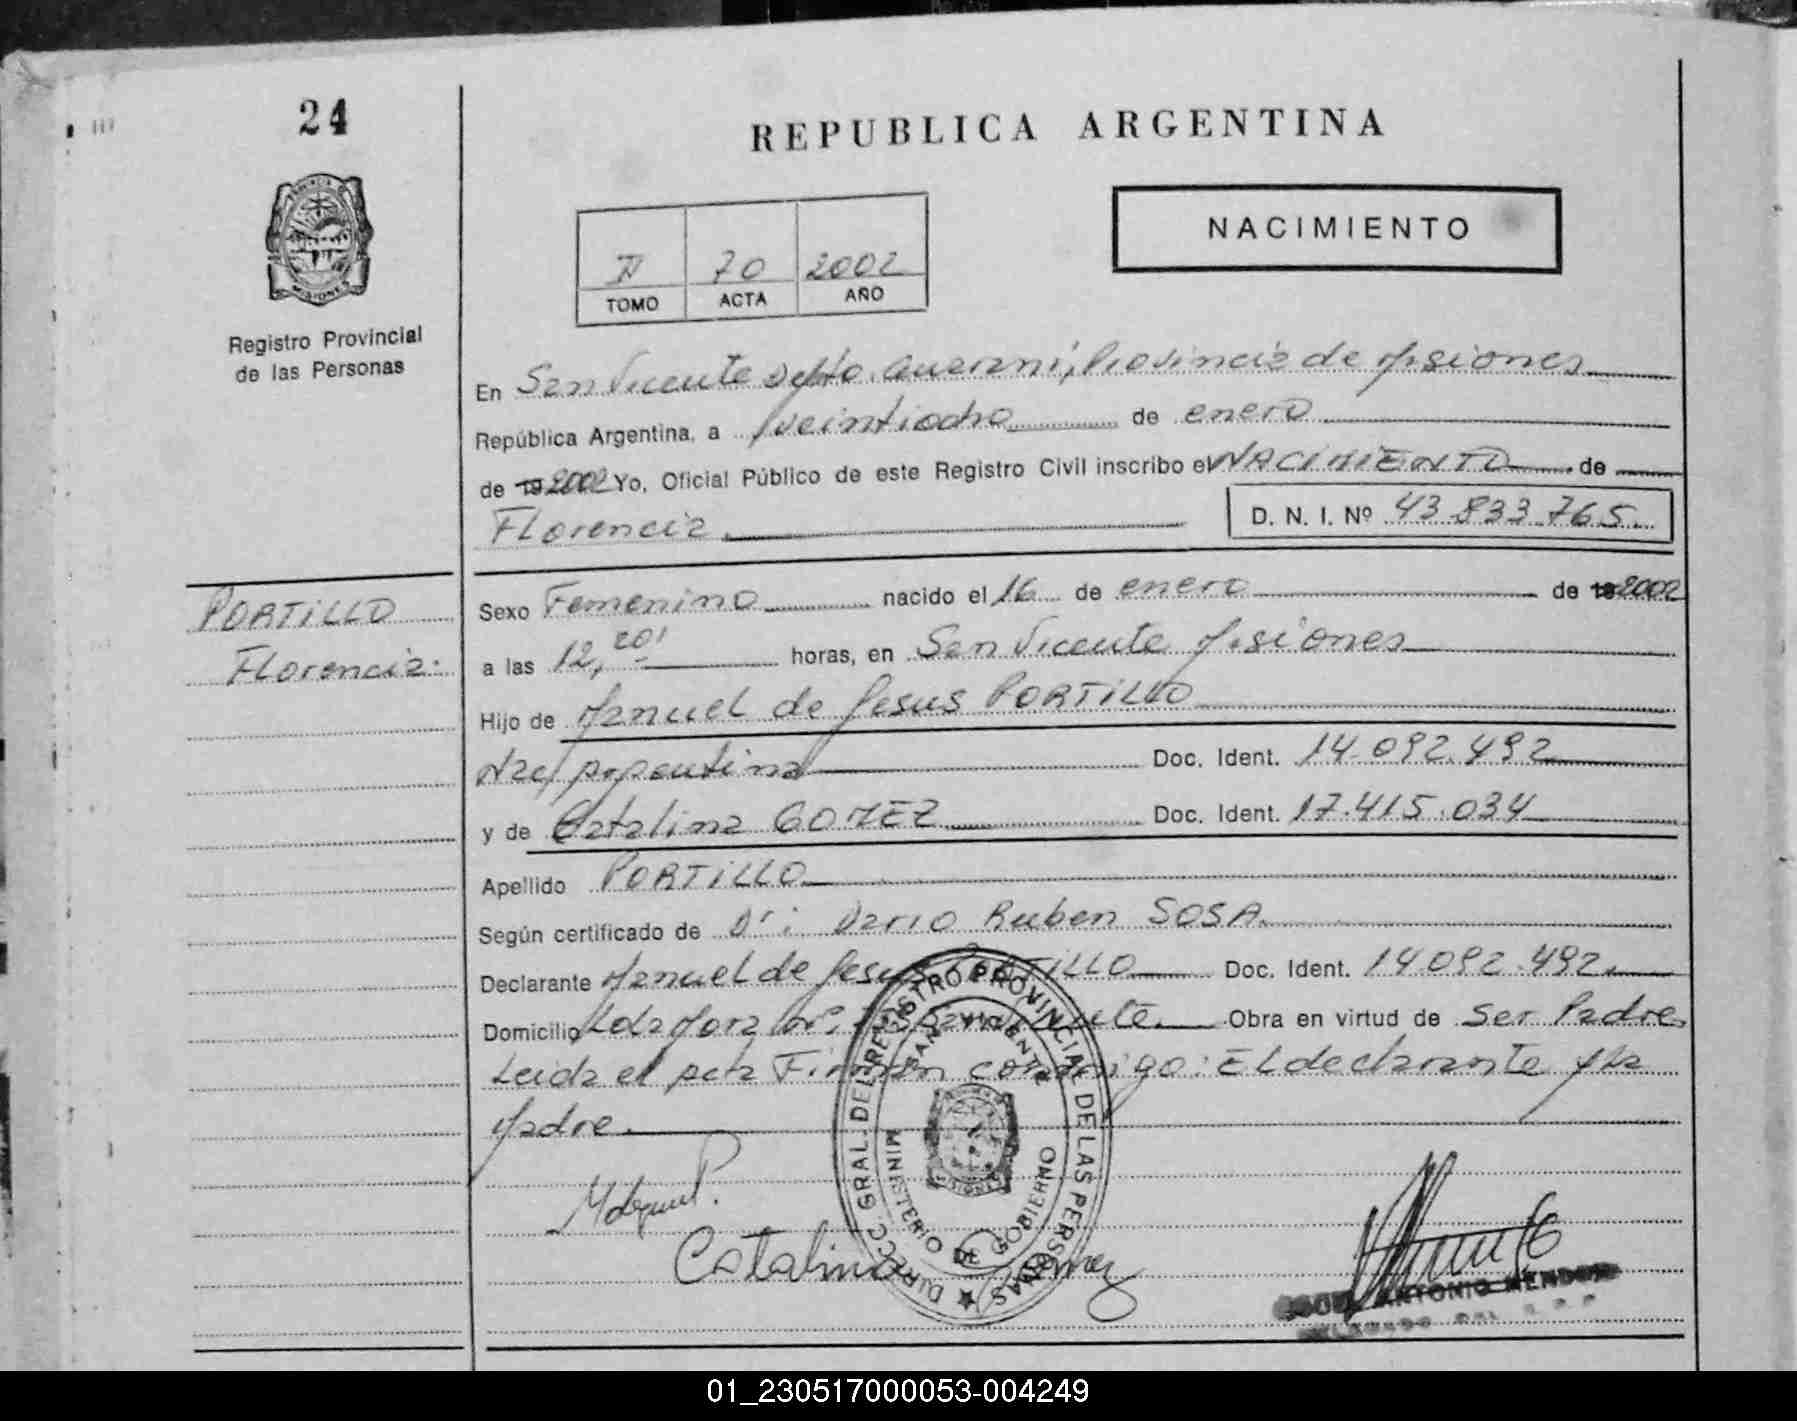 24
REPUBLICA ARGENTINA
NACIMIENTO
II 70 2002
TOMO ACTA AÑO
MISIONES
Registro Provincial
de las Personas
En San Vicente Depto. Guarani, Provincia de Misiones
República Argentina, a veintiocho de enero
de 19 2002 Yo, Oficial Público de este Registro Civil inscribo el NACIMIENTO de
Florencia D. N. I. Nº 43.833.765
PORTILLO
Florencia.
Sexo Femenino nacido el 16 de enero de 19 2002
a las 12,20' horas, en San Vicente Misiones
Hijo de Manuel de Jesus PORTILLO
Nac. Argentina Doc. Ident. 14.092.492
y de Catalina GOMEZ Doc. Ident. 17.415.034
Apellido PORTILLO
Según certificado de Dr: Dario Ruben SOSA
Declarante Manuel de Jesus PORTILLO Doc. Ident. 14092.492
Domicilio San Vicente. Obra en virtud de Ser Padre
Leida el acta Firman conmigo: El declarante y la
Madre.
DIRECC. GRAL. DEL REGISTRO PROVINCIAL DE LAS PERSONAS
SAN VICENTE
MINISTERIO DE GOBIERNO
MISIONES
Catalina Gomez
ANTONIO MENDOZA
01_230517000053-004249